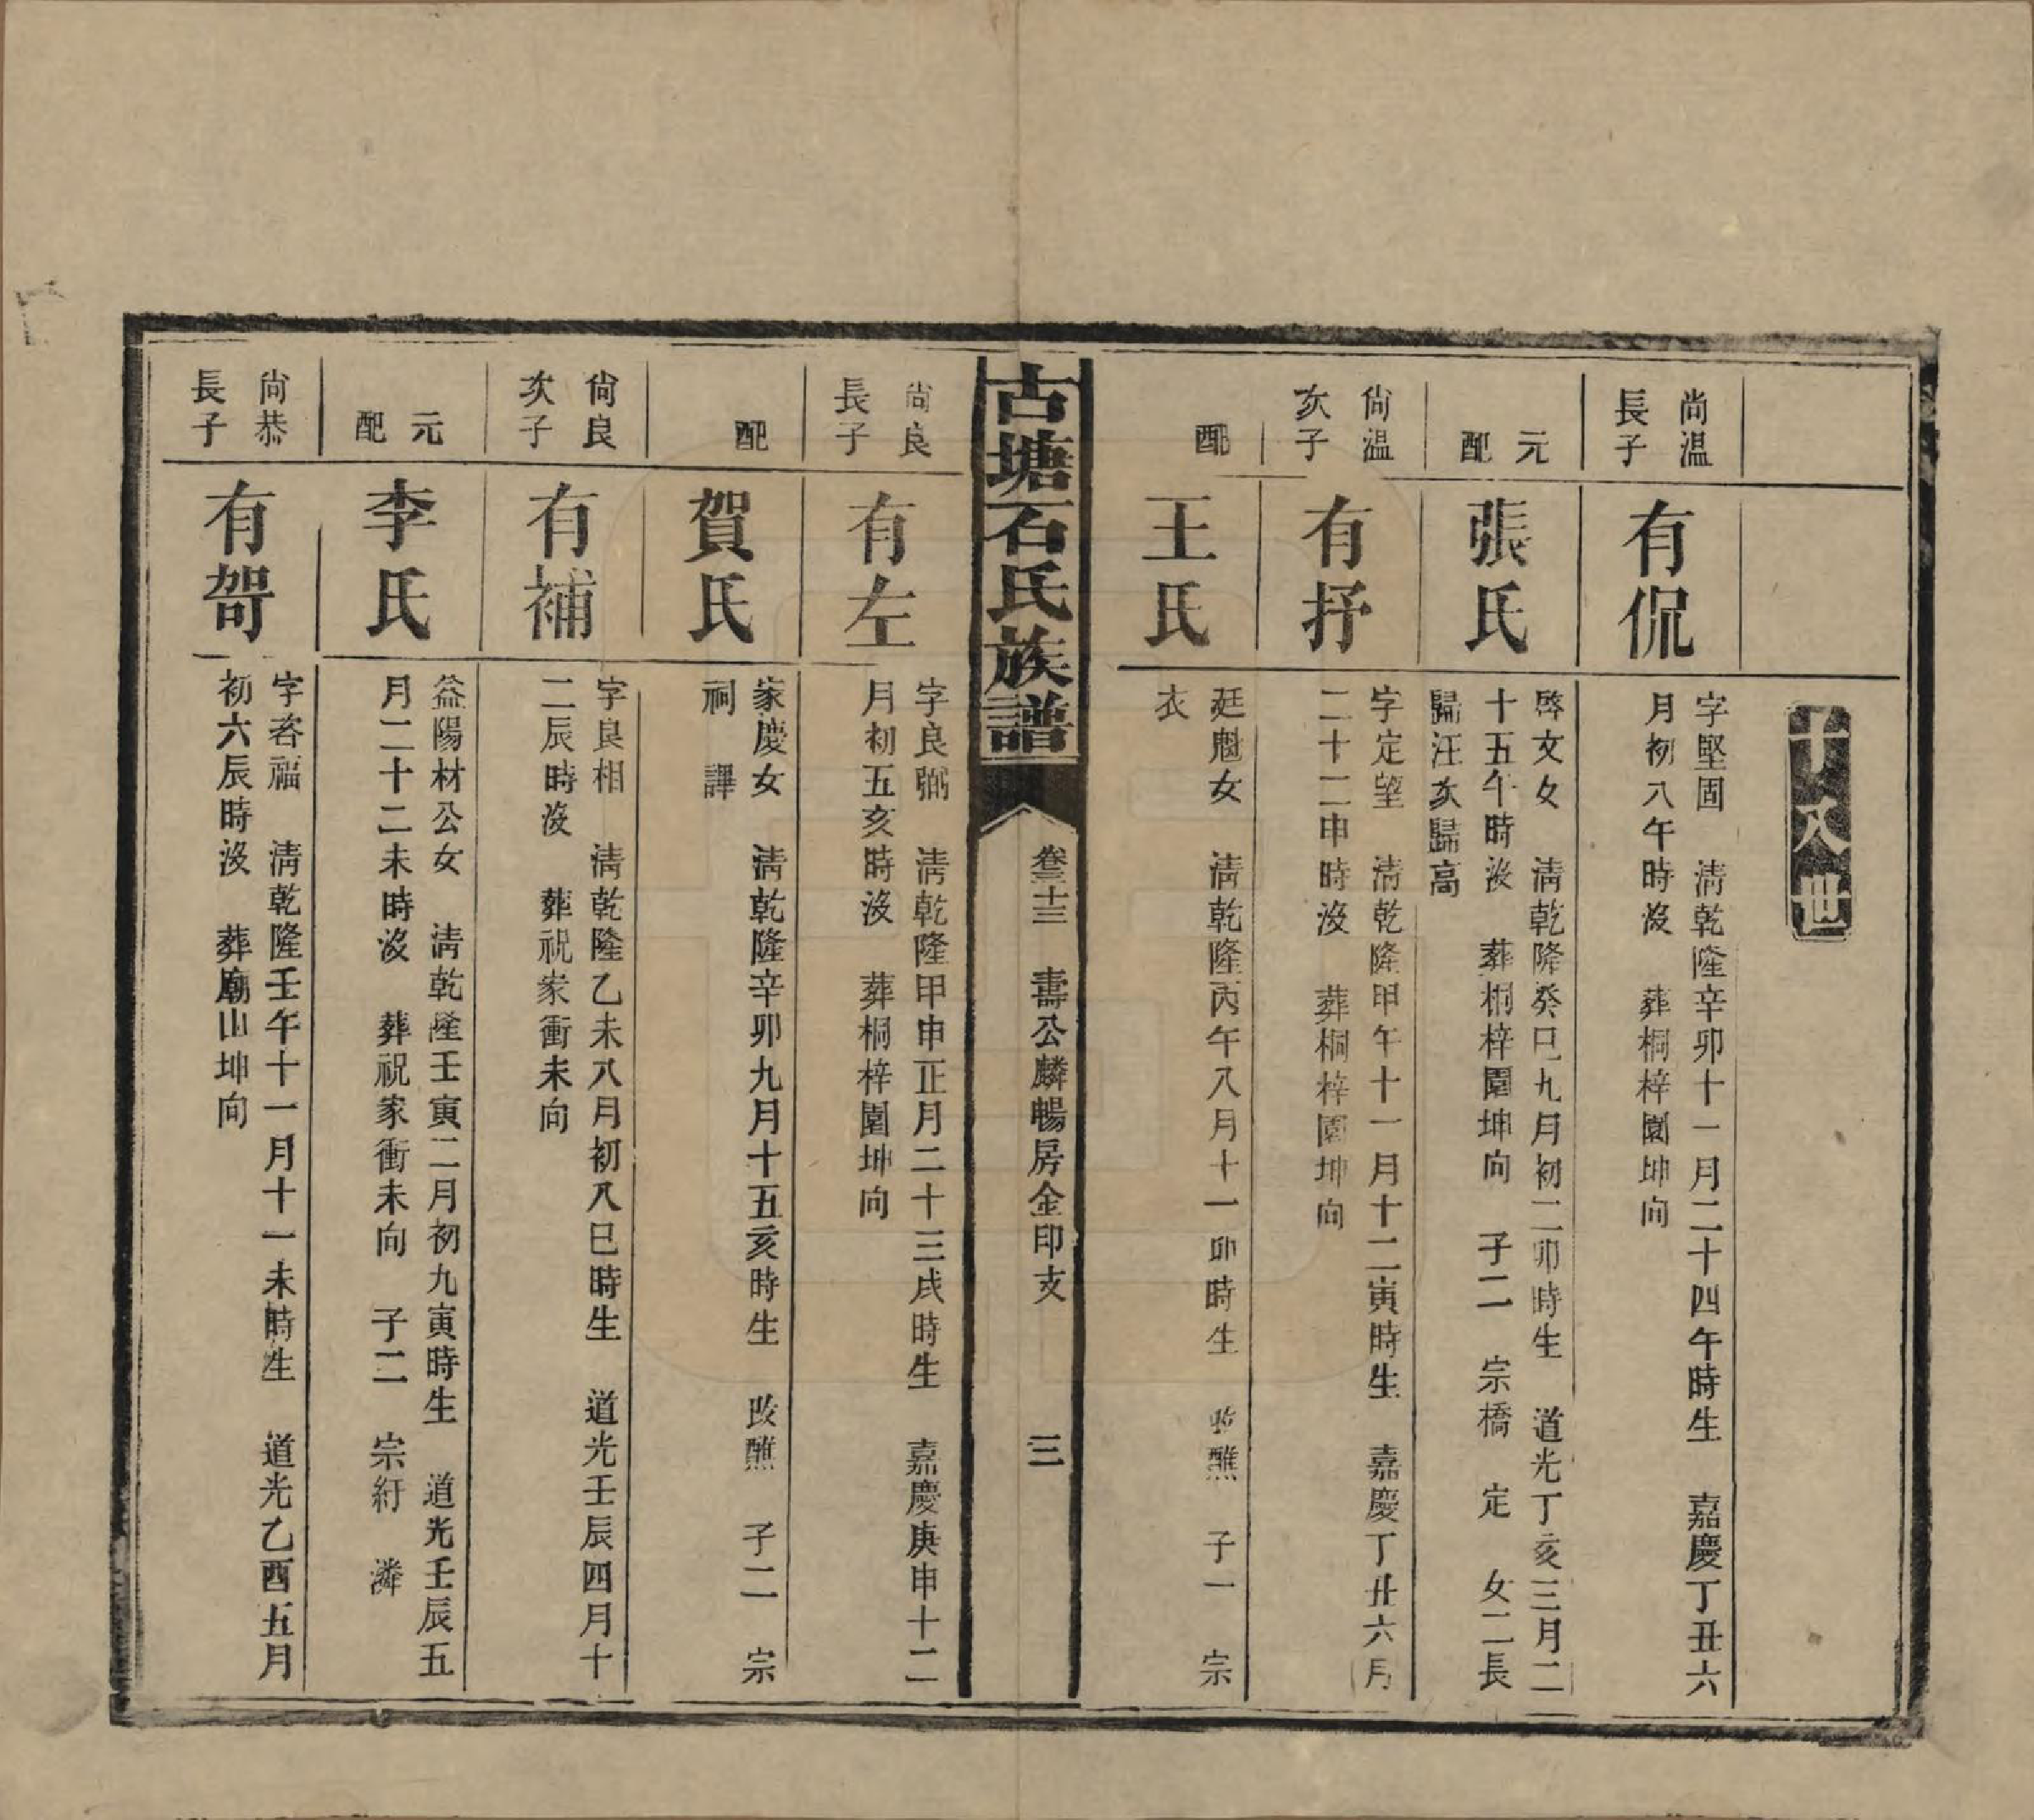 十八世
尚温
長子
有侃
字堅固　清乾隆辛卯十一月二十四午時生　嘉慶丁丑六
月初八午時沒　葬桐梓園坤向
元
配
張氏
啓文女　清乾隆癸巳九月初二卯時生　道光丁亥三月二
十五午時沒　葬桐梓園坤向　子二　宗橋　定　女二長
歸汪次歸高
尚温
次子
有抒
字定望　清乾隆甲午十一月十二寅時生　嘉慶丁丑六月
二十二申時沒　葬桐梓園坤向
配
王氏
廷魁女　清乾隆丙午八月十一卯時生　改醮　子一　宗
衣
古塘石氏族譜
卷三十三　壽公麟暢房金印支　三
尚良
長子
有左
字良弼　清乾隆甲申正月二十三戌時生　嘉慶庚申十二
月初五亥時沒　葬桐梓園坤向
配
賀氏
家慶女　清乾隆辛卯九月十五亥時生　改醮　子二　宗
祠　譯
尚良
次子
有補
字良相　清乾隆乙未八月初八巳時生　道光壬辰四月十
二辰時沒　葬祝家衝未向
元
配
李氏
益陽材公女　清乾隆壬寅二月初九寅時生　道光壬辰五
月二十二未時沒　葬祝家衝未向　子二　宗紆　潾
尚恭
長子
有哿
字茖福　清乾隆壬午十一月十一未時生　道光乙酉五月
初六辰時沒　葬廟山坤向